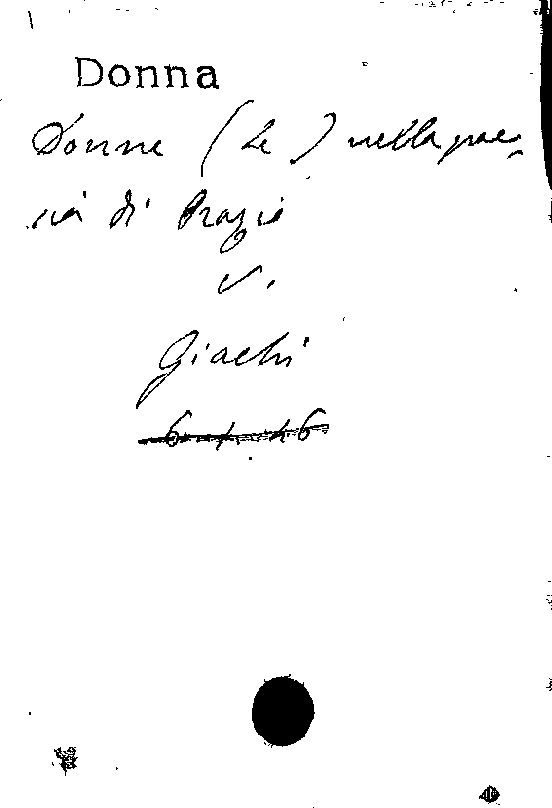 Donna
Donne (Le) nella poe-
sia di Orazio
v.
Giachi
6 4 46